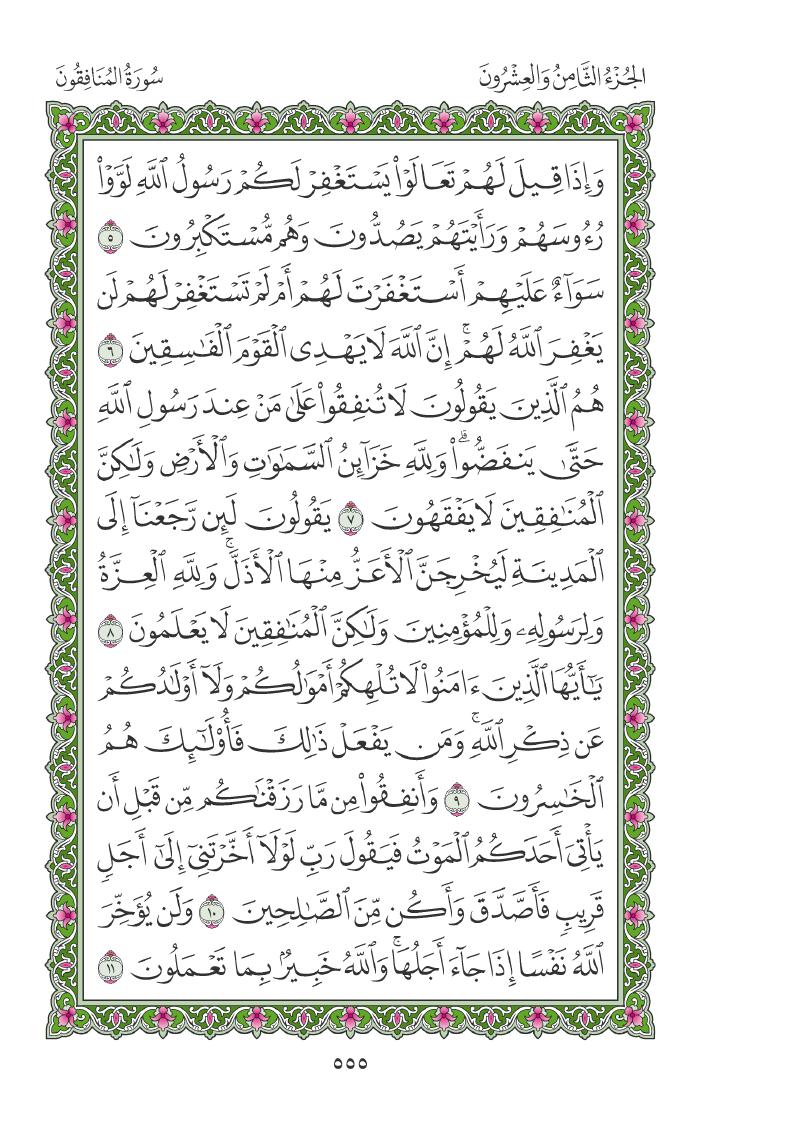 الجُزْءُ الثَّامِنُ وَالعِشْرُونَ
سُورَةُ المُنَافِقُونَ
وَإِذَا قِيلَ لَهُمۡ تَعَالَوۡاْ يَسۡتَغۡفِرۡ لَكُمۡ رَسُولُ ٱللَّهِ لَوَّوۡاْ
رُءُوسَهُمۡ وَرَأَيۡتَهُمۡ يَصُدُّونَ وَهُم مُّسۡتَكۡبِرُونَ ٥
سَوَآءٌ عَلَيۡهِمۡ أَسۡتَغۡفَرۡتَ لَهُمۡ أَمۡ لَمۡ تَسۡتَغۡفِرۡ لَهُمۡ لَن
يَغۡفِرَ ٱللَّهُ لَهُمۡۚ إِنَّ ٱللَّهَ لَا يَهۡدِي ٱلۡقَوۡمَ ٱلۡفَٰسِقِينَ ٦
هُمُ ٱلَّذِينَ يَقُولُونَ لَا تُنفِقُواْ عَلَىٰ مَنۡ عِندَ رَسُولِ ٱللَّهِ
حَتَّىٰ يَنفَضُّواْۗ وَلِلَّهِ خَزَآئِنُ ٱلسَّمَٰوَٰتِ وَٱلۡأَرۡضِ وَلَٰكِنَّ
ٱلۡمُنَٰفِقِينَ لَا يَفۡقَهُونَ ٧ يَقُولُونَ لَئِن رَّجَعۡنَآ إِلَى
ٱلۡمَدِينَةِ لَيُخۡرِجَنَّ ٱلۡأَعَزُّ مِنۡهَا ٱلۡأَذَلَّۚ وَلِلَّهِ ٱلۡعِزَّةُ
وَلِرَسُولِهِۦ وَلِلۡمُؤۡمِنِينَ وَلَٰكِنَّ ٱلۡمُنَٰفِقِينَ لَا يَعۡلَمُونَ ٨
يَٰٓأَيُّهَا ٱلَّذِينَ ءَامَنُواْ لَا تُلۡهِكُمۡ أَمۡوَٰلُكُمۡ وَلَآ أَوۡلَٰدُكُمۡ
عَن ذِكۡرِ ٱللَّهِۚ وَمَن يَفۡعَلۡ ذَٰلِكَ فَأُوْلَٰٓئِكَ هُمُ
ٱلۡخَٰسِرُونَ ٩ وَأَنفِقُواْ مِن مَّا رَزَقۡنَٰكُم مِّن قَبۡلِ أَن
يَأۡتِيَ أَحَدَكُمُ ٱلۡمَوۡتُ فَيَقُولَ رَبِّ لَوۡلَآ أَخَّرۡتَنِيٓ إِلَىٰٓ أَجَلٖ
قَرِيبٖ فَأَصَّدَّقَ وَأَكُن مِّنَ ٱلصَّٰلِحِينَ ١٠ وَلَن يُؤَخِّرَ
ٱللَّهُ نَفۡسًا إِذَا جَآءَ أَجَلُهَاۚ وَٱللَّهُ خَبِيرُۢ بِمَا تَعۡمَلُونَ ١١
٥٥٥